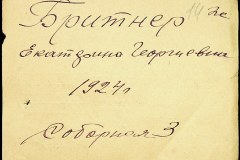 Бритнер
Екатерина Георгиевна
1924 г
Соборная 3